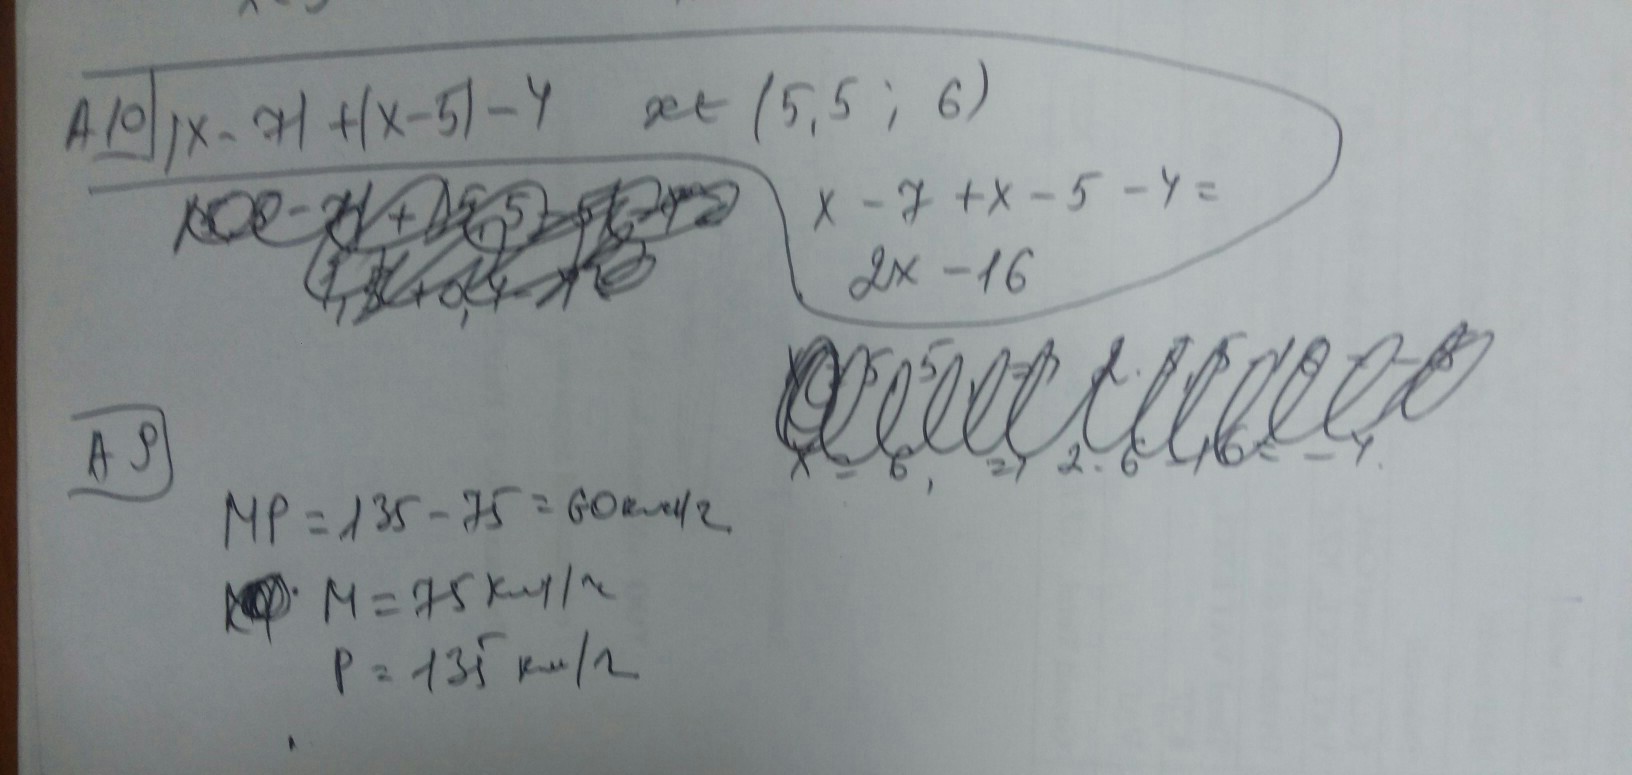 A10 |x - 7| + |x - 5| - 4 x ∈ (5,5 ; 6)
x - 7 + x - 5 - 4 =
2x - 16
x = 6, => 2·6 - 16 = - 4.
A 9
MP = 135 - 75 = 60 км/г
M = 75 км/г
P = 135 км/г